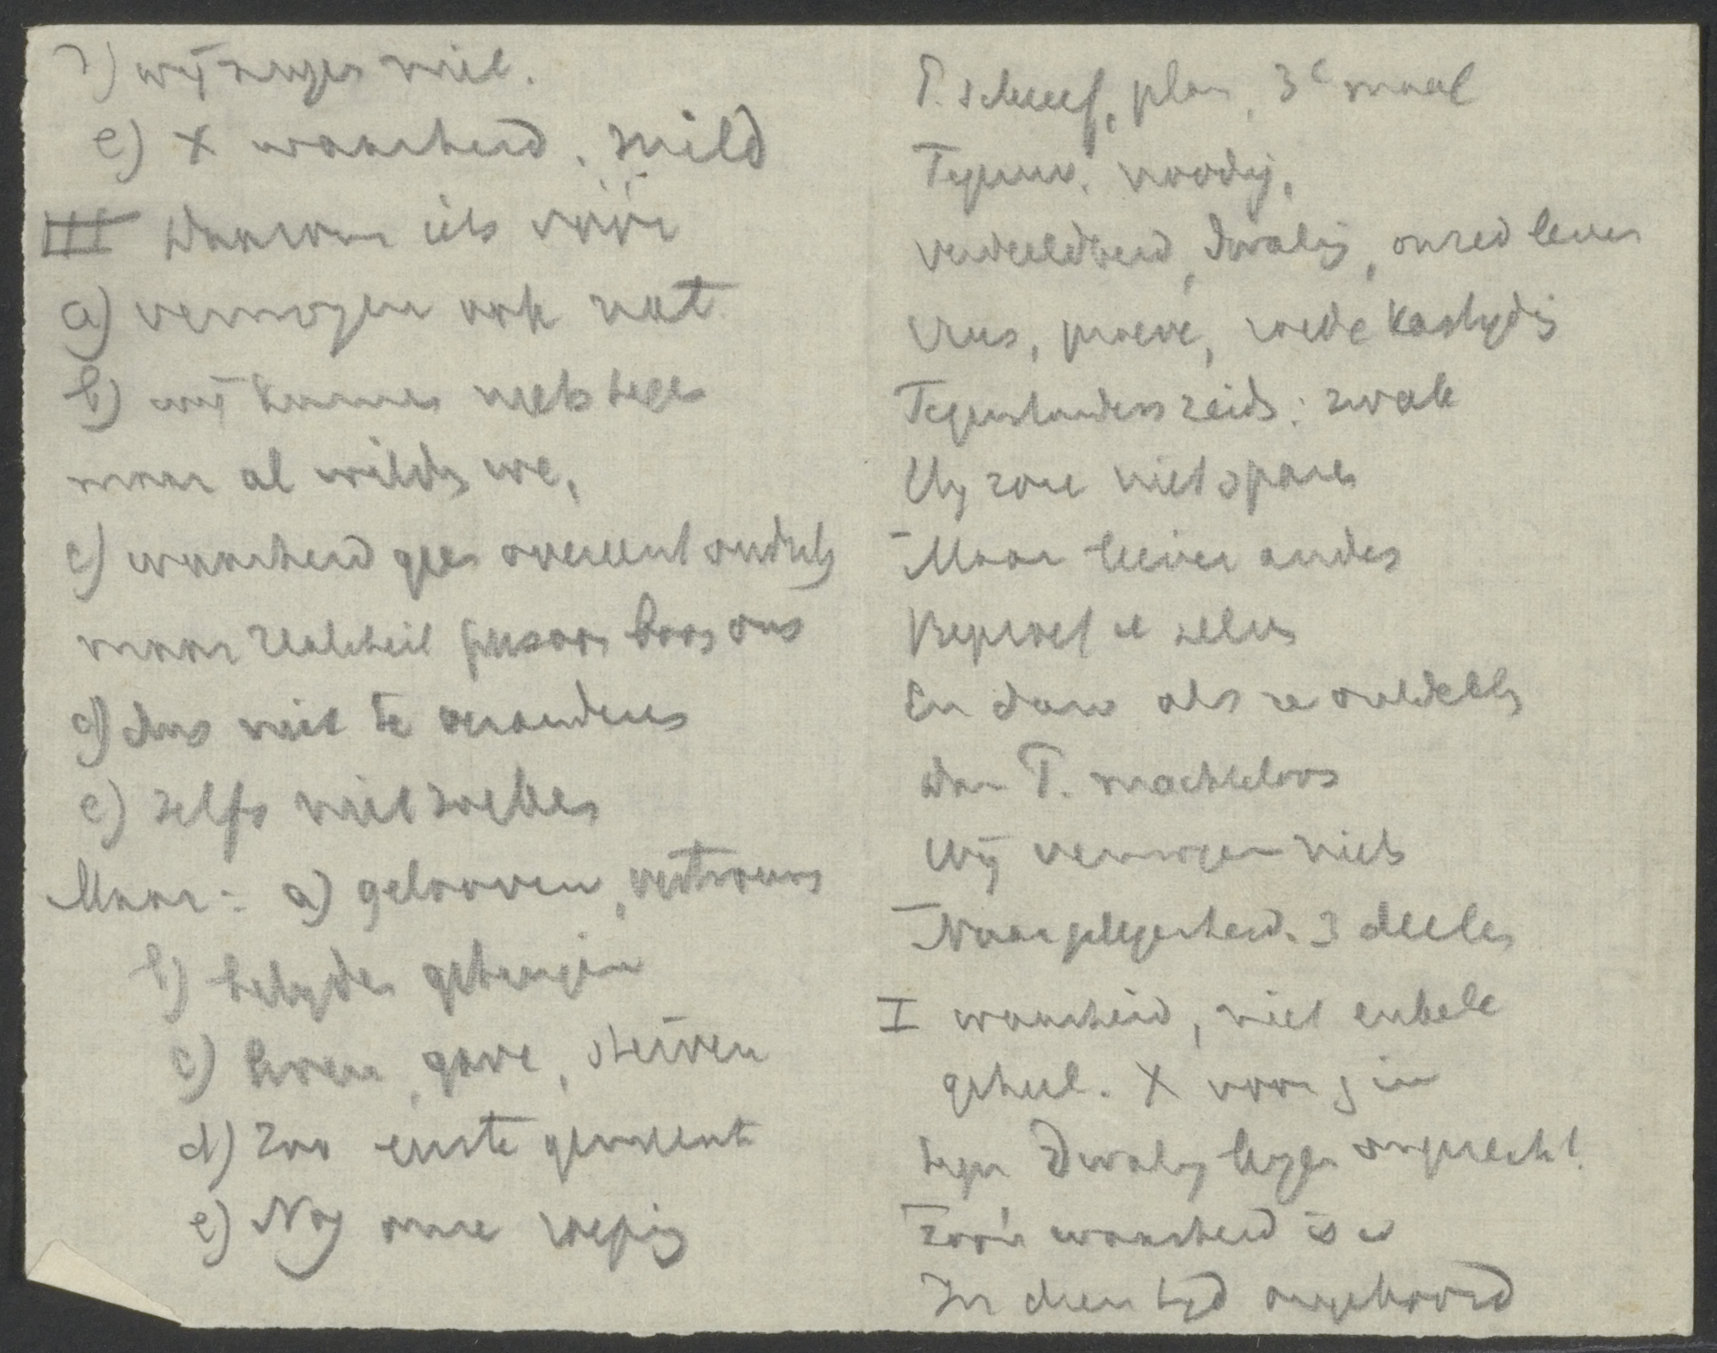 wij mogen niet.
e) X waarheid. mild
III Daarvan iets vóór
a) vermogen ook wat
b) wij kunnen niets tegen
maar al wilden we,
c) waarheid geen overeenk
maar realiteit boos ons
d) dus niet te veranderen
e) zelfs niet
Maar: a) gelooven, vertrouwen
b) belijden getuigen
c) leven, gave, sterven
d) Zoo eerste gemeente
e) Nog onze roeping
P. schreef, plan, 3e maal
Tegenw. noodig,
verdeeldheid, dwaling, onzed leven
Vrees, proeve, roede kastijdig
Tegenstanders zeids: zwak
Hij zou niet sparen
Maar liever anders
Beproef u zelven
En dan als ze ontdekken
Dan P. machteloos
Wij vermogen niets
Naar gelegenheid. 3 deelen
I waarheid, niet enkele
geheel. X voor
tegen Dwaling leugen onoprecht!
Zoo'n waarheid is er
In dien tijd ongehoord